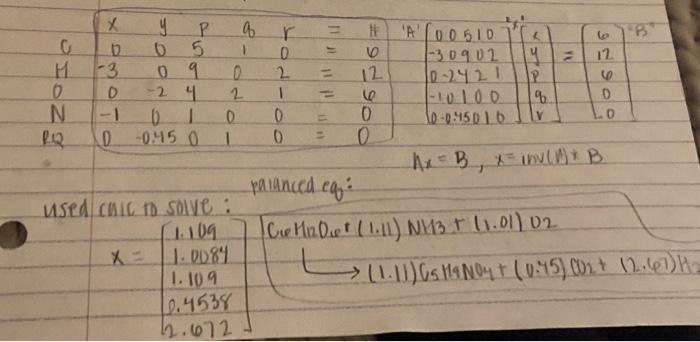 x y p q r = # 'A' "x" "B"
C 0 0 5 1 0 = 6
H -3 0 9 0 2 = 12
O 0 -2 4 2 1 = 6
N -1 0 1 0 0 = 0
RQ 0 -0.45 0 1 0 = 0
[0 0 5 1 0] [x] [6]
-3 0 9 0 2 y = 12
0 -2 4 2 1 p 6
-1 0 1 0 0 q 0
0 -0.45 0 1 0 r 0
Ax = B, x = inv(A) * B
balanced eq:
used calc to solve:
x = [1.109
1.0084
1.109
0.4538
2.672]
C6H12O6 + (1.11) NH3 + (1.01) O2
→ (1.11) C5H9NO4 + (0.45) CO2 + (2.67) H2